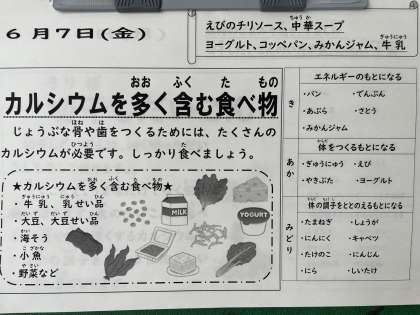 6月7日(金)
えびのチリソース、中華スープ
ヨーグルト、コッペパン、みかんジャム、牛乳
カルシウムを多く含む食べ物
じょうぶな骨や歯をつくるためには、たくさんの
カルシウムが必要です。しっかり食べましょう。
★カルシウムを多く含む食べ物★
・牛乳、乳せい品
・大豆、大豆せい品
・海そう
・小魚
・野菜など
MILK
YOGURT
き
エネルギーのもとになる
・パン ・でんぷん
・あぶら ・さとう
・みかんジャム
あか
体をつくるもとになる
・ぎゅうにゅう ・えび
・やきぶた ・ヨーグルト
みどり
体の調子をととのえるもとになる
・たまねぎ ・しょうが
・にんにく ・キャベツ
・たけのこ ・にんじん
・にら ・しいたけ